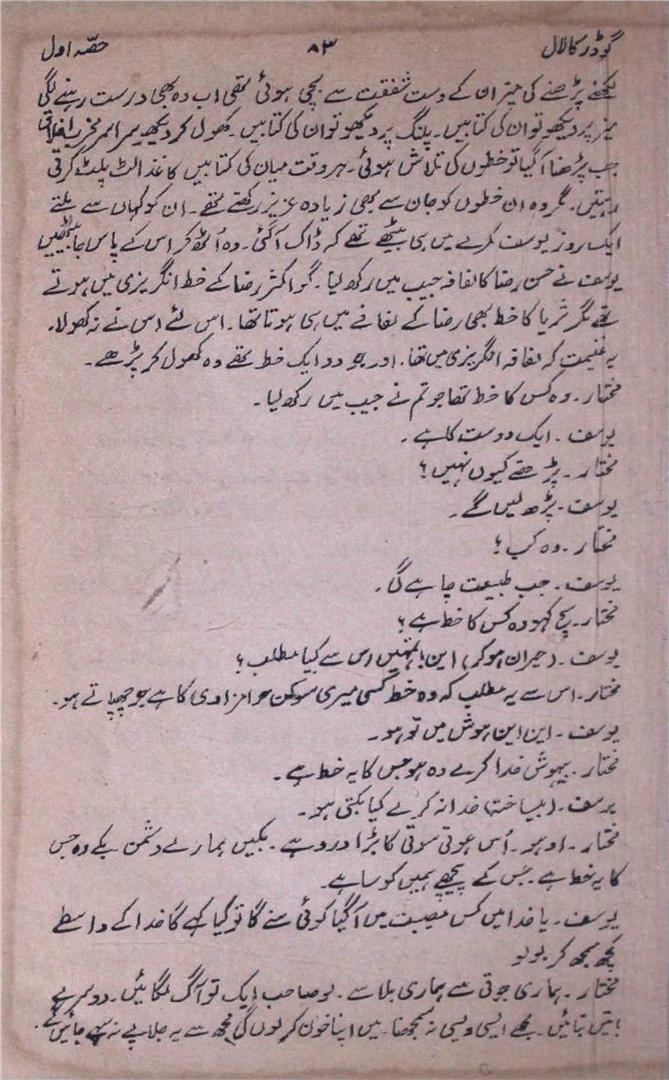 گوڈر کا لال ۸۳ حصّہ اول
لکھنے پڑھنے کی میز ان کے دست شفقت سے بچی ہوئی تھی اب وہ بھی درست رہنے لگی
میز پر دیکھو تو ان کی کتابیں۔ پلنگ پر دیکھو تو ان کی کتابیں۔ کھول کر دیکھو سراسر مخرب اخلاق
جب پڑھنا آگیا تو خطوں کی تلاش ہوئی۔ ہر وقت میان کی کتابیں کاغذ الٹ پلٹ کرتی
رہتیں۔ مگر وہ ان خطوں کو جان سے بھی زیادہ عزیز رکھتے تھے۔ ان کو کہاں سے ملتے
ایک روز یوسف کمرے میں ہی بیٹھے تھے کہ ڈاک آگئی۔ وہ اُٹھ کر اس کے پاس جا بیٹھیں
یوسف نے حسن رضا کا لفافہ جیب میں رکھ لیا۔ گو اکثر رضا کے خط انگریزی میں ہوتے
تھے مگر ثریا کا خط بھی رضا کے لفافے میں ہی ہوتا تھا۔ اس لئے اس نے نہ کھولا۔
یہ غنیمت کہ لفافہ انگریزی میں تھا۔ اور جو دو ایک خط تھے وہ کھول کر پڑھے۔
مختار۔ وہ کس کا خط تھا جو تم نے جیب میں رکھ لیا۔
یوسف۔ ایک دوست کا ہے۔
مختار۔ پڑھتے کیوں نہیں؟
یوسف۔ پڑھ لیں گے۔
مختار۔ وہ کب؟
یوسف۔ جب طبیعت چاہے گی۔
مختار۔ سچ کہو وہ کس کا خط ہے؟
یوسف۔ (حیران ہو کر) این! تمہیں اس سے کیا مطلب؟
مختار۔ اس سے یہ مطلب کہ وہ خط کسی میری سوکن حرامزادی کا ہے جو چھپاتے ہو۔
یوسف۔ این این ہوش میں تو ہو۔
مختار۔ بیہوش خدا کرے وہ ہو جس کا یہ خط ہے۔
یوسف۔ (بیساختہ) خدا نہ کرے کیا بکتی ہو۔
مختار۔ اوہو۔ اُس عوتی سوتی کا بڑا درد ہے۔ بکیں ہمارے دشمن بکے وہ جس
کا یہ خط ہے۔ جس کے پیچھے ہمیں کوسا ہے۔
یوسف۔ یا خدا میں کس مصیبت میں آگیا کوئی سنے گا تو کیا کہے گا خدا کے واسطے
کچھ سمجھ کر بولو
مختار۔ ہماری جوتی سے ہماری بلا سے۔ لو صاحب ایک تو آگ لگائیں۔ دوسرے
باتیں بنائیں۔ مجھے ایسی ویسی نہ سمجھنا۔ میں اپنا خون کر لوں گی مجھ سے یہ جلاپے نہ سہے جائیں گے۔